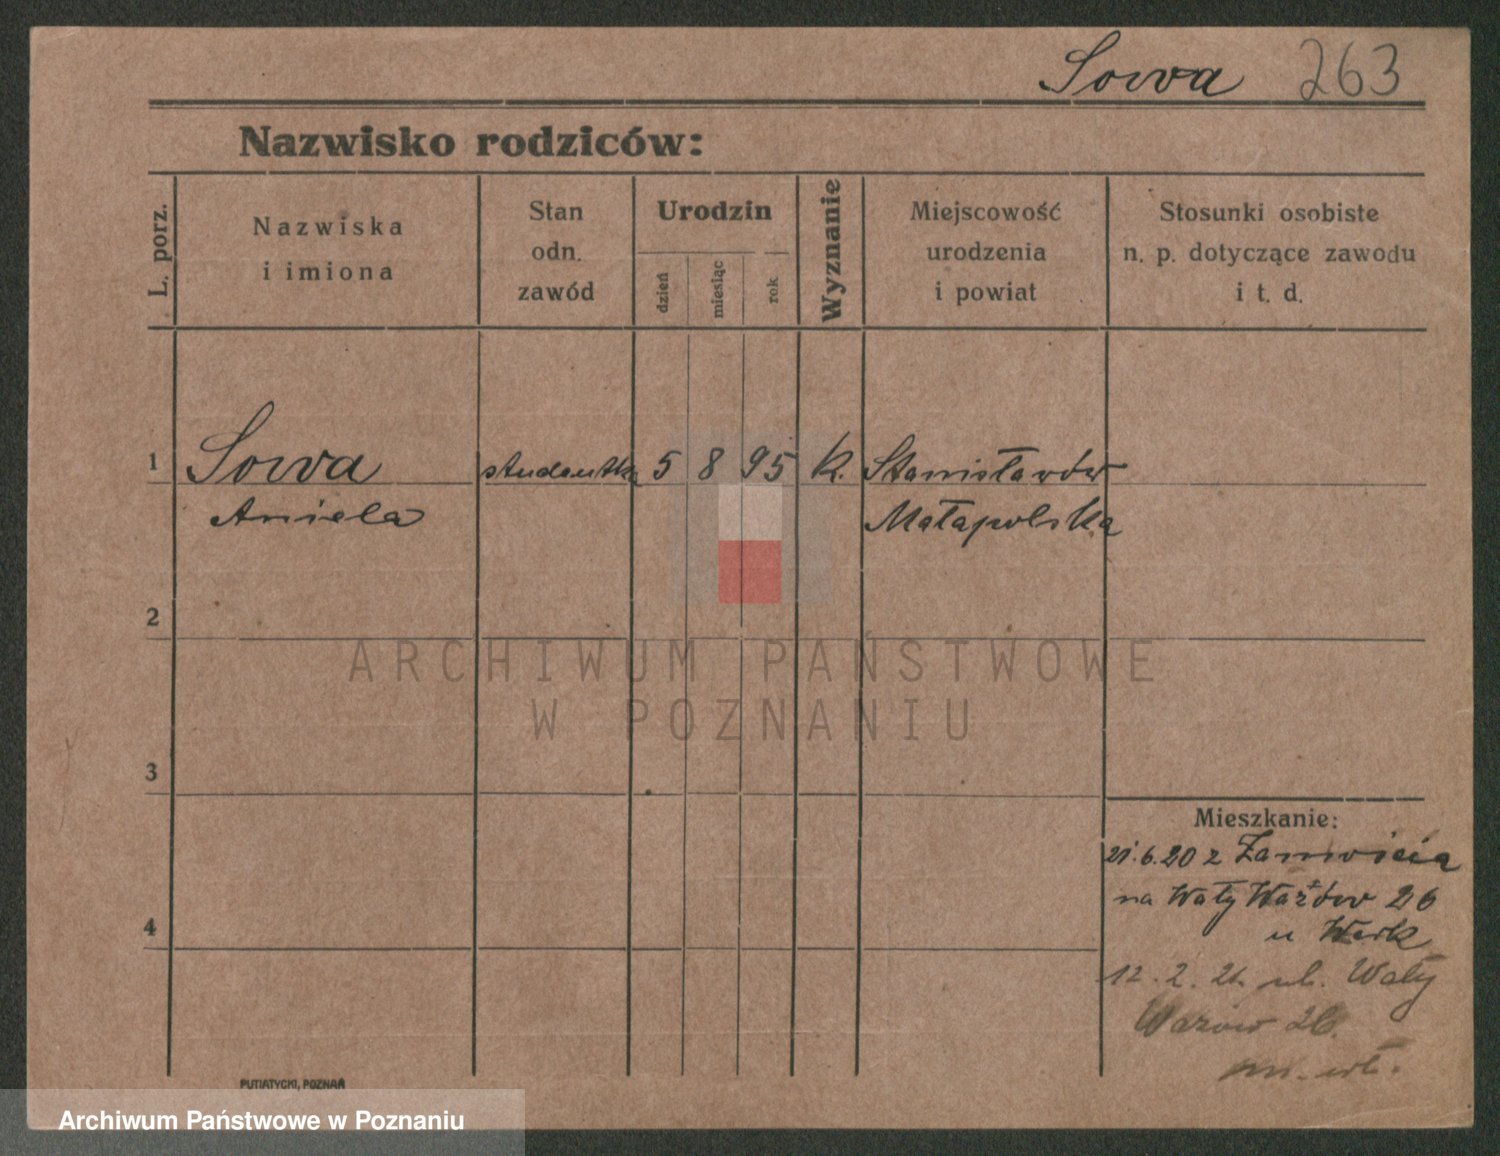 Sowa 263
Nazwisko rodziców:
L. porz.
Nazwiska
i imiona
Stan
odn.
zawód
Urodzin
dzień
miesiąc
rok
Wyznanie
Miejscowość
urodzenia
i powiat
Stosunki osobiste
n. p. dotyczące zawodu
i t. d.
1 Sowa studentka 5 8 95 k. Stanisławów
Aniela Małapolska
2
3
4
Mieszkanie:
21.6.20 z
na Wały Wazów 26
u
12.2.21. ul. Wały
Wazów 26.
PUTIATYCKI, POZNAŃ
ARCHIWUM PAŃSTWOWE
W POZNANIU
Archiwum Państwowe w Poznaniu